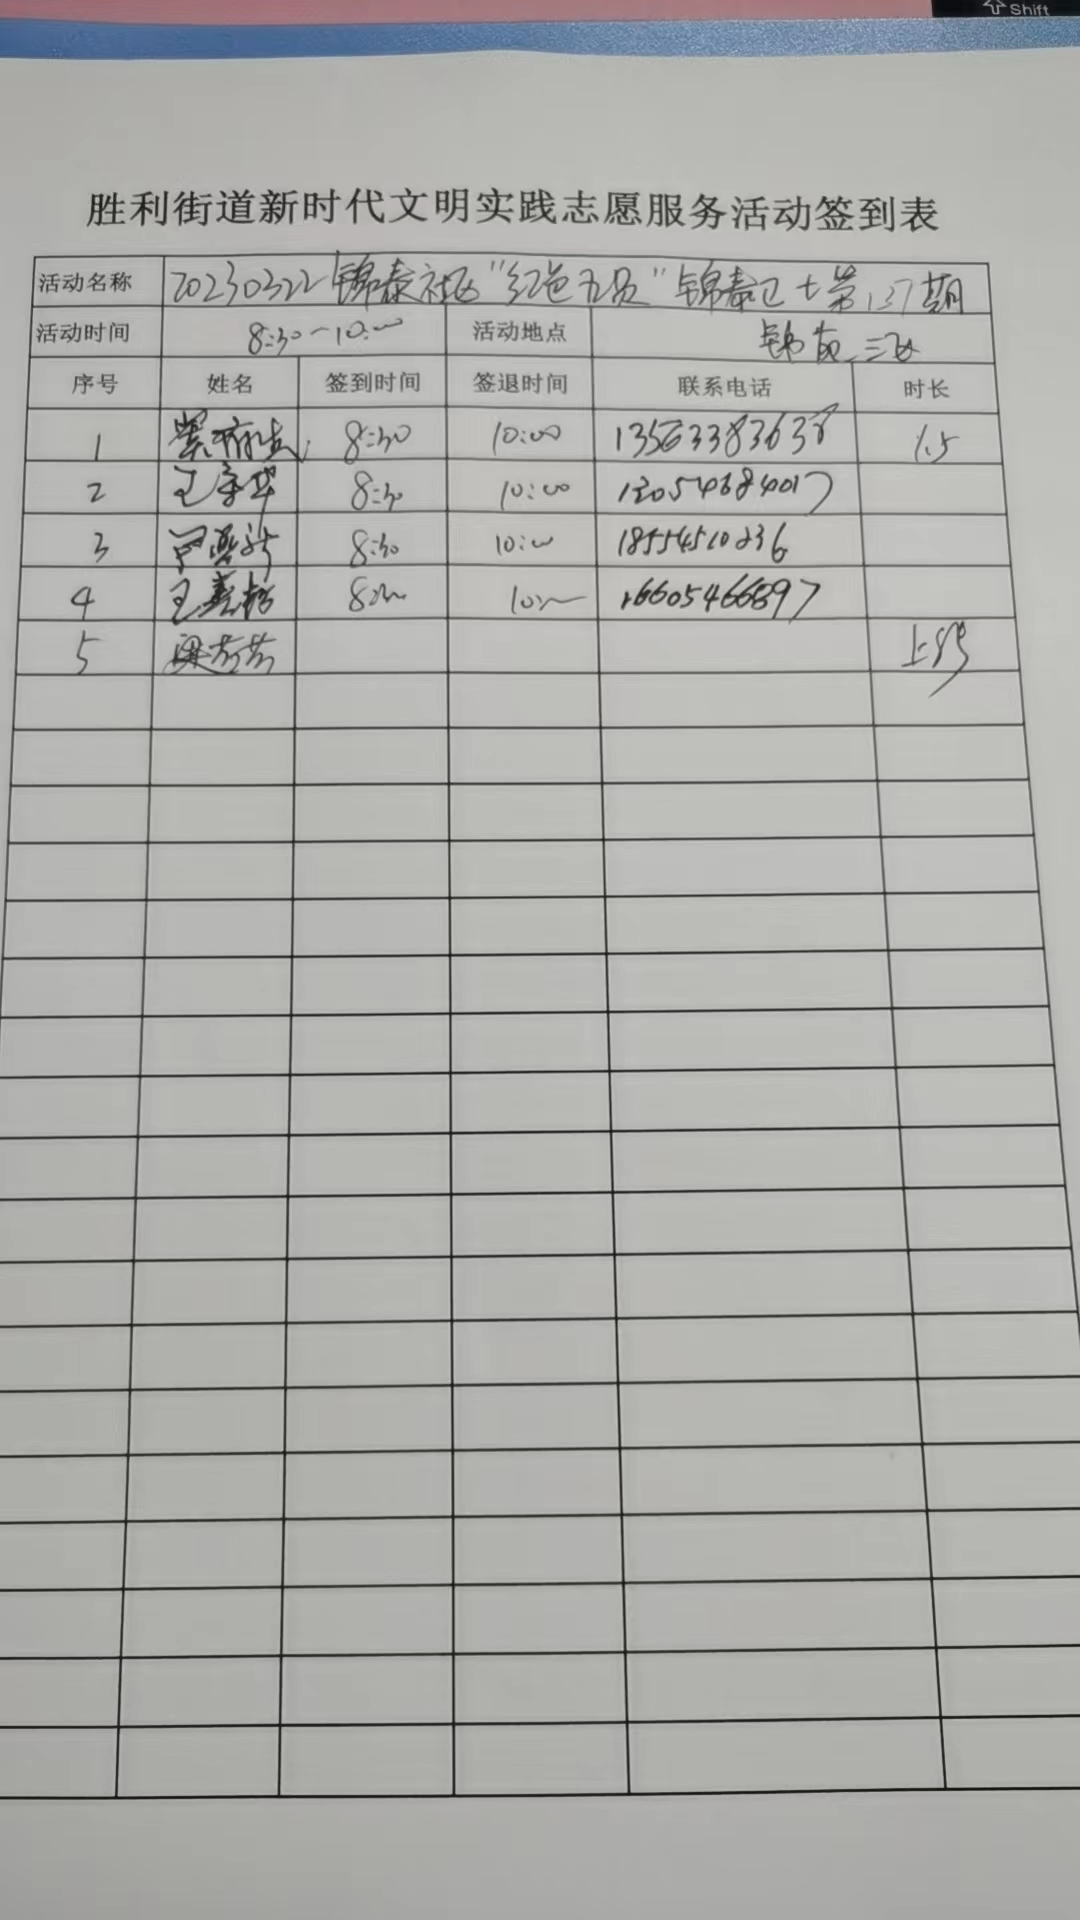 Shift
胜利街道新时代文明实践志愿服务活动签到表
活动名称 20230322锦泰社区"红色五员"锦泰卫士第137期
活动时间 8:30—10:00 活动地点 锦 三区
序号 姓名 签到时间 签退时间 联系电话 时长
1 8:30 10:00 13563383638 1.5
2 王 华 8:30 10:00 13054684017
3 8:30 10:00 18554510236
4 王 8:30 10:00 16605466697
5